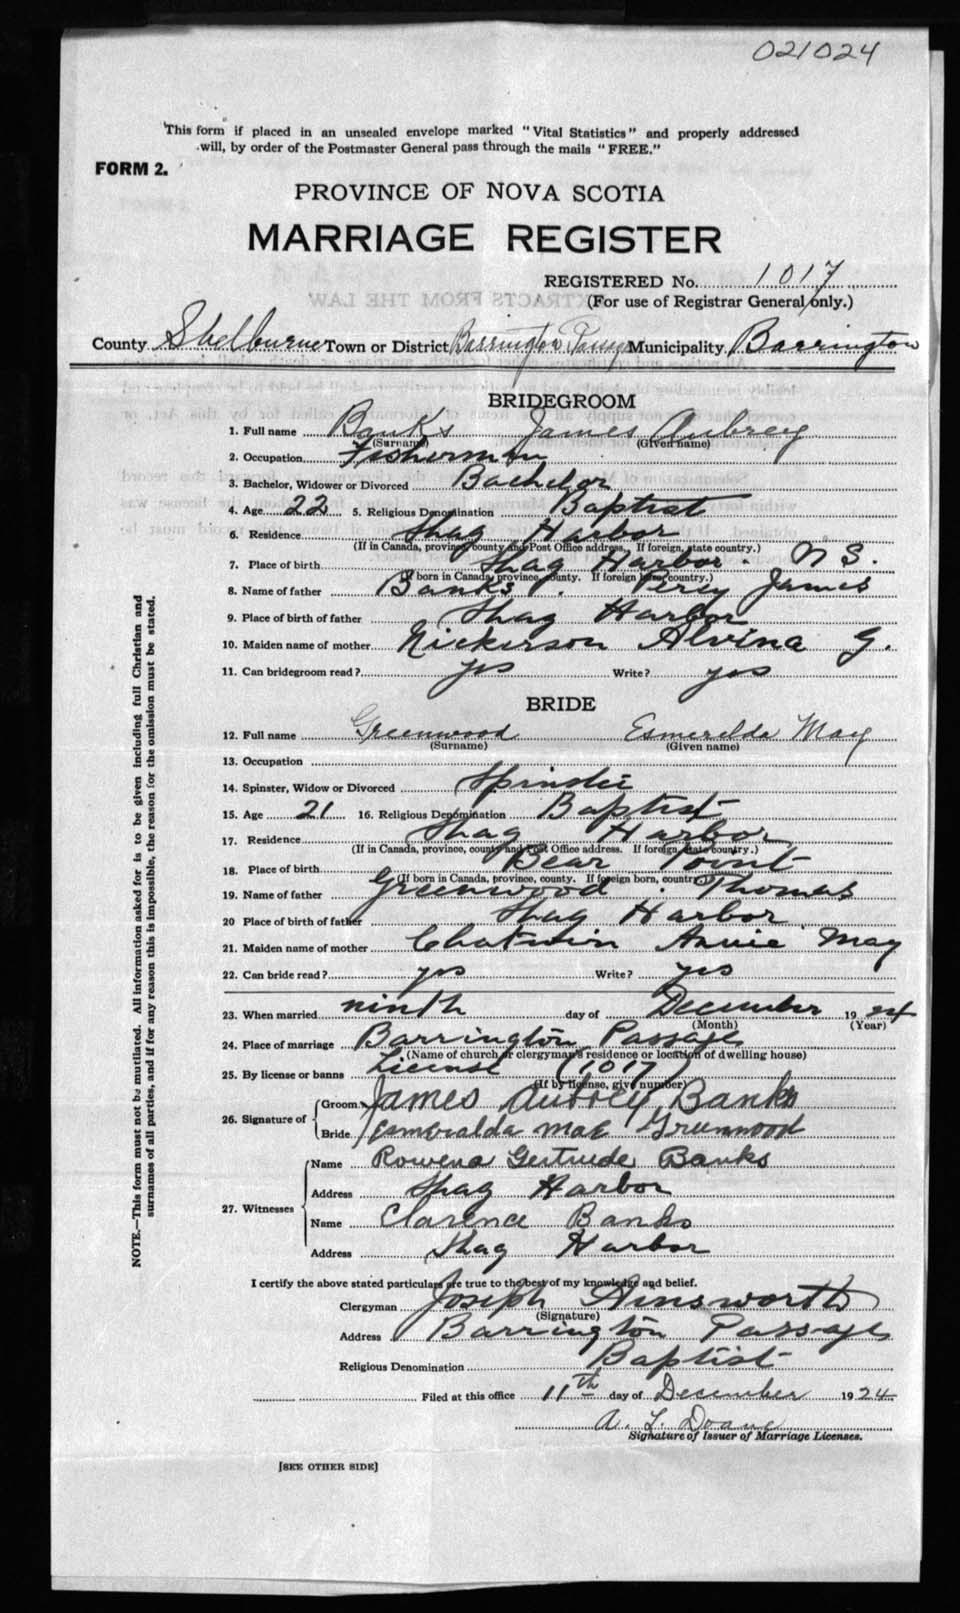 021024
This form if placed in an unsealed envelope marked "Vital Statistics" and properly addressed
will, by order of the Postmaster General pass through the mails "FREE."
FORM 2.
PROVINCE OF NOVA SCOTIA
MARRIAGE REGISTER
REGISTERED No. 1017
(For use of Registrar General only.)
County Shelburne Town or District Barrington Passage Municipality Barrington
BRIDEGROOM
1. Full name Banks James Aubrey
(Surname) (Given name)
2. Occupation Fisherman
3. Bachelor, Widower or Divorced Bachelor
4. Age 22 5. Religious Denomination Baptist
6. Residence Shag Harbor
(If in Canada, province, county and Post Office address. If foreign, state country.)
7. Place of birth Shag Harbor. N S.
(If born in Canada, province, county. If foreign born, country.)
8. Name of father Banks. Percy James
9. Place of birth of father Shag Harbor
10. Maiden name of mother Nickerson Alvina G.
11. Can bridegroom read? yes Write? yes
BRIDE
12. Full name Greenwood Esmerelda May
(Surname) (Given name)
13. Occupation
14. Spinster, Widow or Divorced Spinster
15. Age 21 16. Religious Denomination Baptist
17. Residence Shag Harbor
(If in Canada, province, county and Post Office address. If foreign, state country.)
18. Place of birth Bear Point
(If born in Canada, province, county. If foreign born, country.)
19. Name of father Greenwood. Thomas
20 Place of birth of father Shag Harbor
21. Maiden name of mother Chatwin Annie May
22. Can bride read? yes Write? yes
23. When married ninth day of December 1924
(Month) (Year)
24. Place of marriage Barrington Passage
(Name of church or clergyman's residence or location of dwelling house)
25. By license or banns License (1017)
(If by license, give number)
26. Signature of Groom James Aubrey Banks
Bride Esmeralda Mae Greenwood
27. Witnesses Name Rowena Gertrude Banks
Address Shag Harbor
Name Clarence Banks
Address Shag Harbor
I certify the above stated particulars are true to the best of my knowledge and belief.
Clergyman Joseph Ainsworth
(Signature)
Address Barrington Passage
Religious Denomination Baptist
Filed at this office 11th day of December 1924
A. L. Doane
Signature of Issuer of Marriage Licenses.
[SEE OTHER SIDE]
NOTE.—This form must not be mutilated. All information asked for is to be given including full Christian and
surnames of all parties, and if for any reason this is impossible, the reason for the omission must be stated.